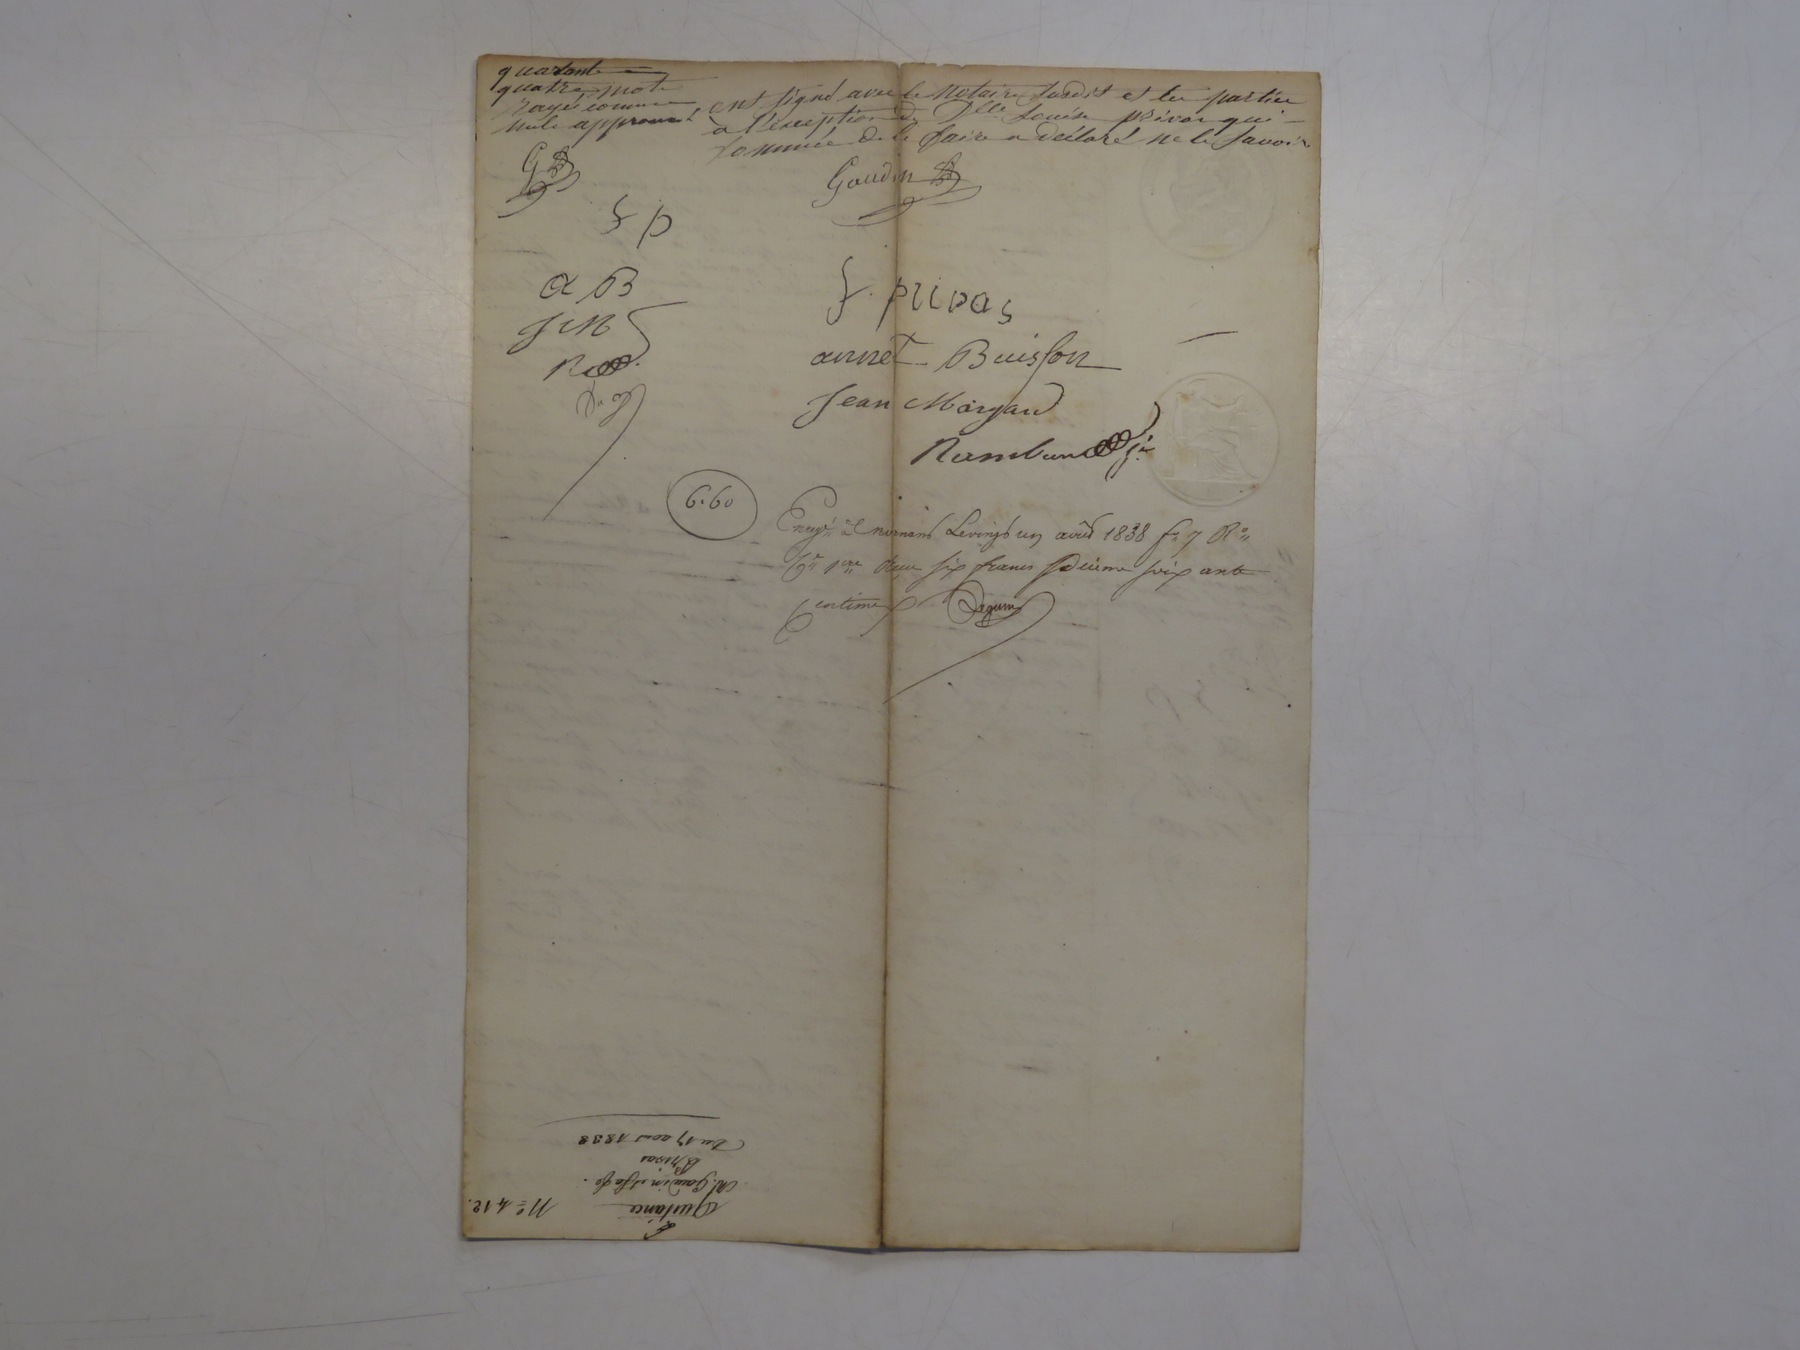 quarante
quatre mots
rayés comme
nuls approuvé
ont signé avec le Notaire susdit et les parties
à l'exception de Dlle Louise privas qui
sommée de le faire a déclaré ne le savoir
G
Gaudin
f p
a B
J M
R
f. privas
annet Buisson
Jean Morgand
6.60
le vingt un août 1838 f° 7 R°
six francs décime soixante
centimes
N° 412.
Quittance
M. Gaudin
Privas
Du 17 aout 1838